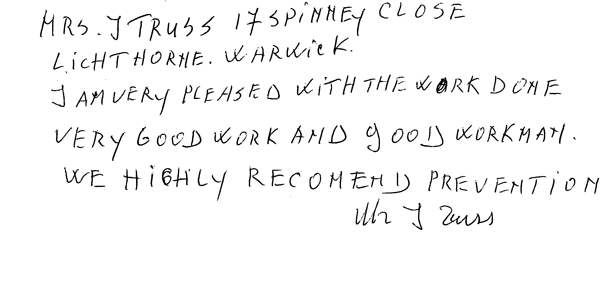 MRS. J TRUSS 17 SPINNEY CLOSE
LICHTHORNE. WARWICK.
I AM VERY PLEASED WITH THE WORK DONE
VERY GOOD WORK AND GOOD WORKMAN.
WE HIGHLY RECOMEND PREVENTION
Mr J Truss